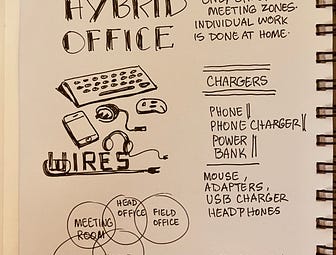 HYBRID
OFFICE
WIRES
MEETING
ROOM
HEAD
OFFICE
FIELD
OFFICE
MEETING ZONES.
INDIVIDUAL WORK
IS DONE AT HOME.
CHARGERS
PHONE
PHONE CHARGER
POWER
BANK
MOUSE,
ADAPTERS,
USB CHARGER
HEADPHONES